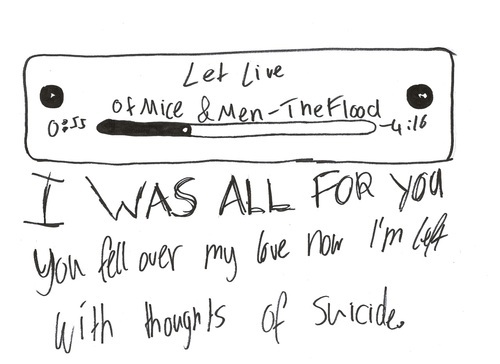 Let Live
Of Mice & Men - The Flood
0:55
-4:16
I WAS ALL FOR YOU
You fell over my love now I'm left
with thoughts of suicide.